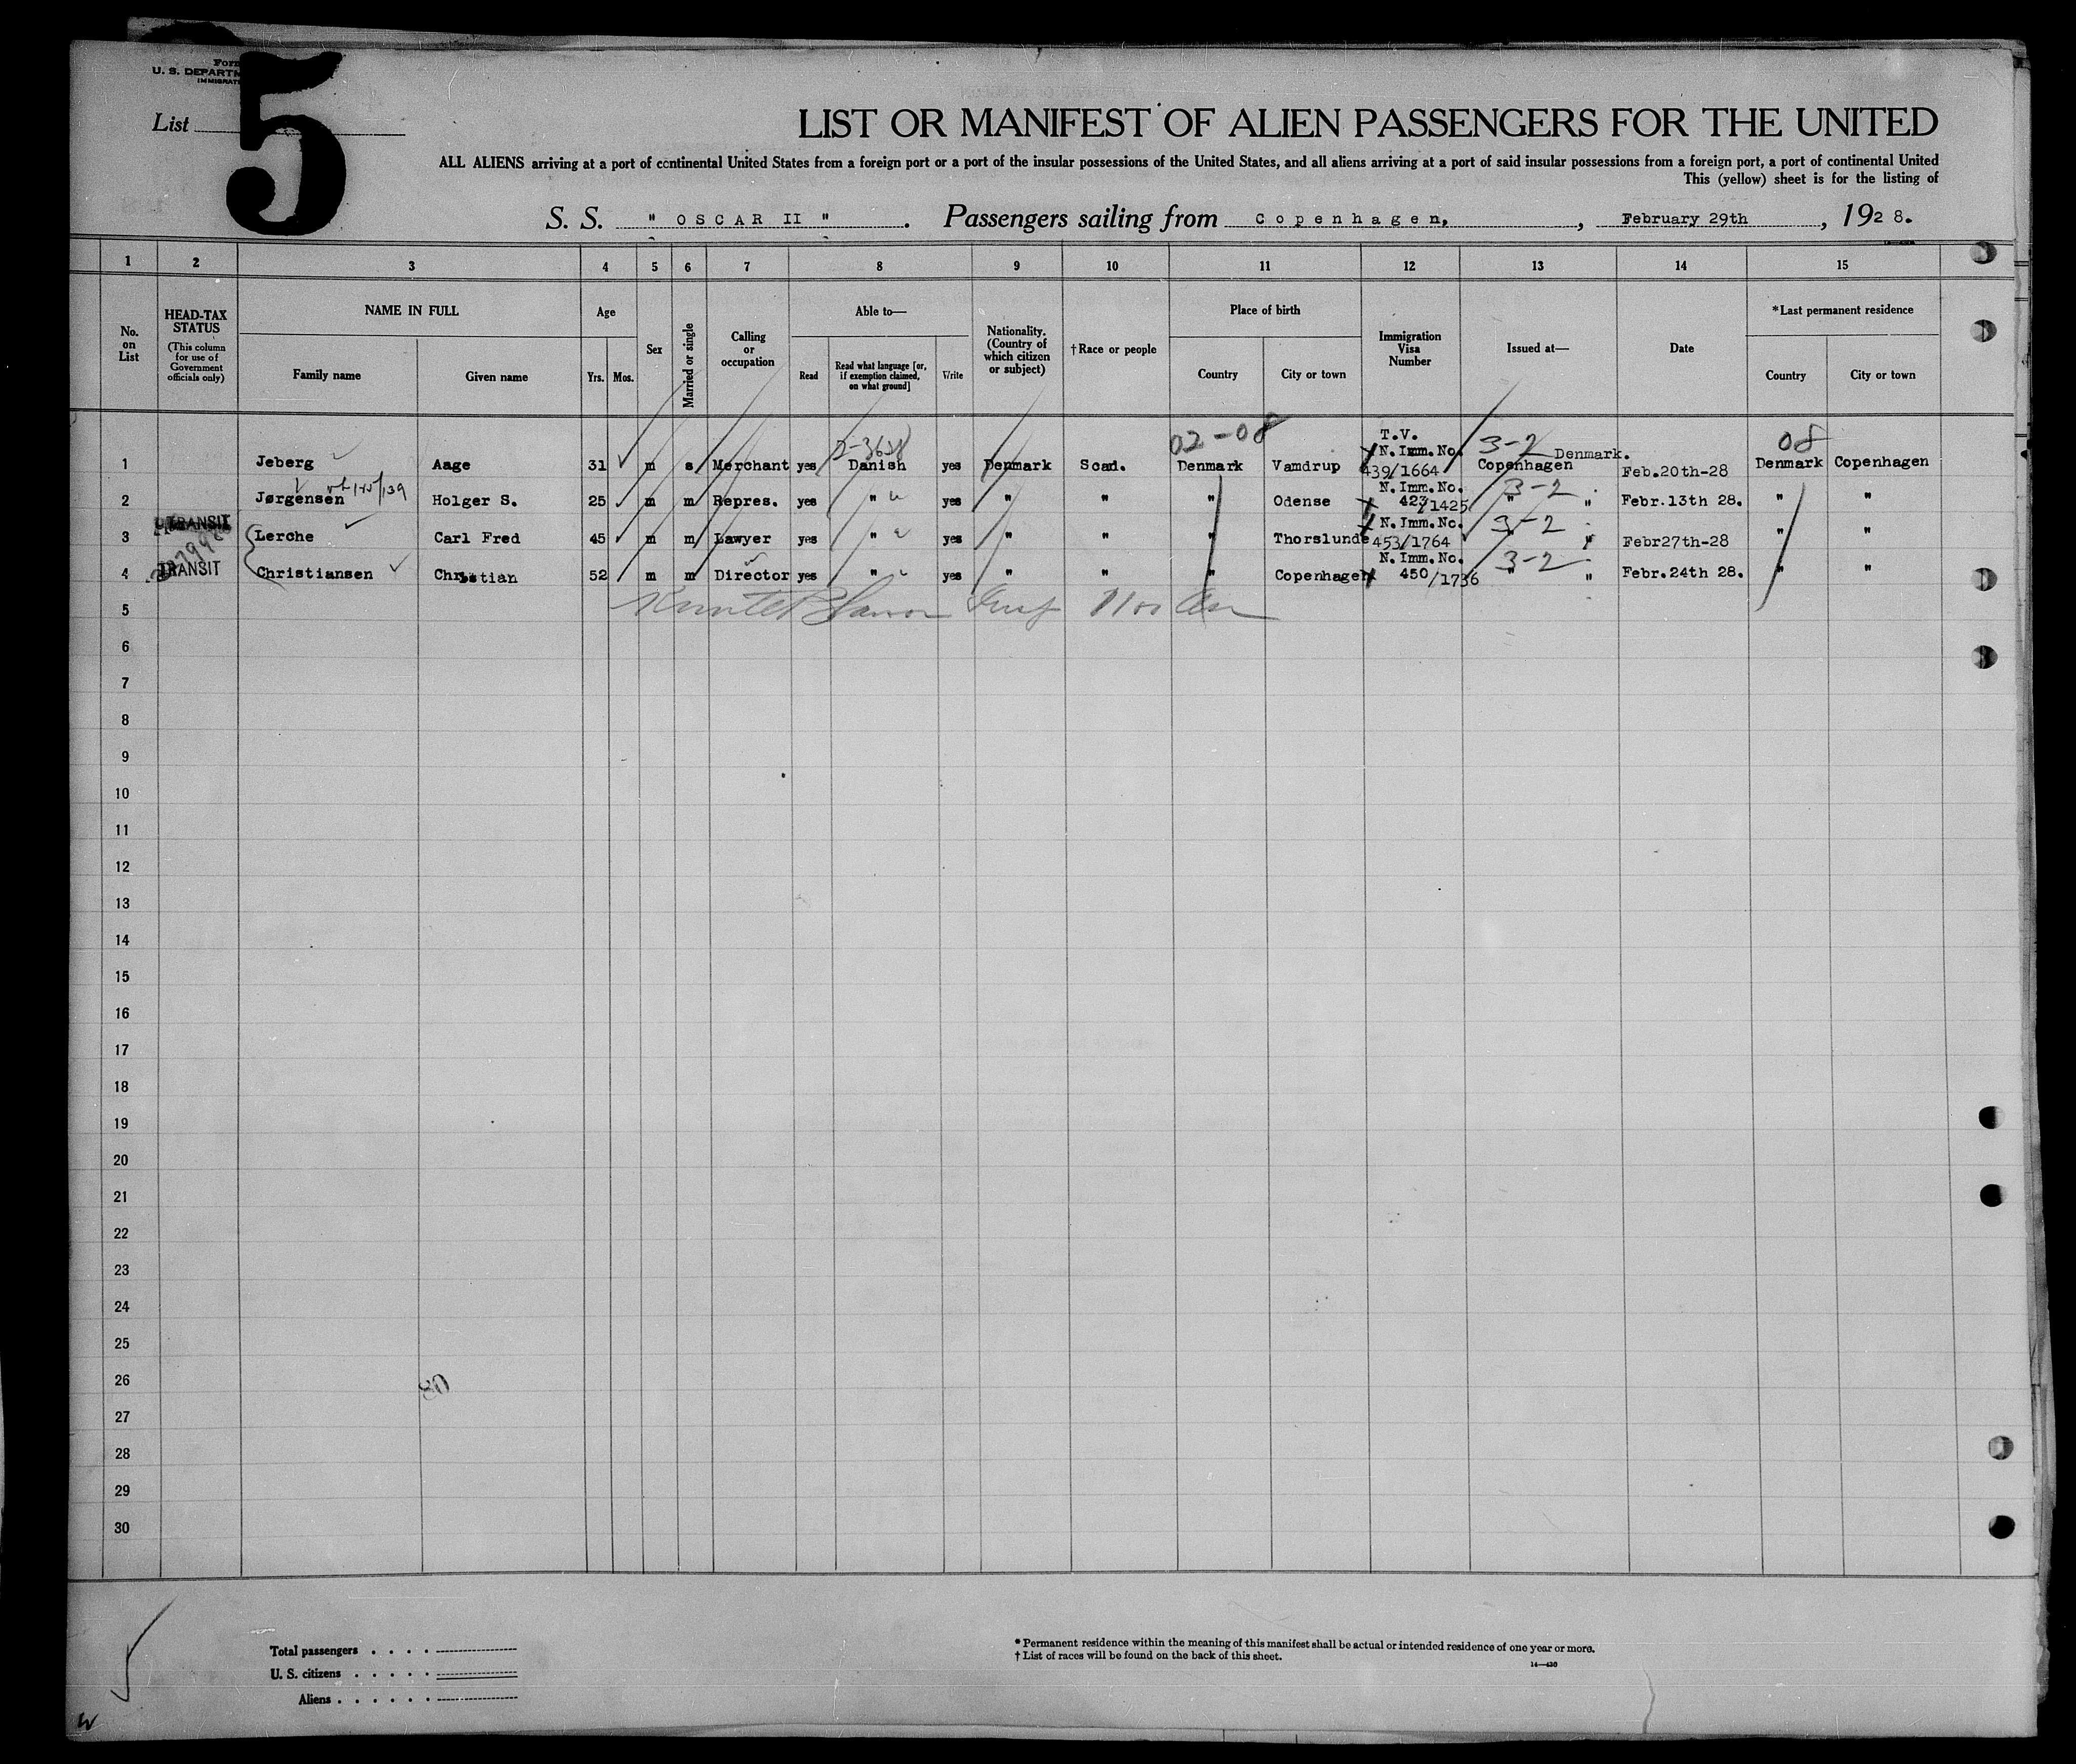 Form
U. S. DEPARTM
IMMIGRAT
List 5
LIST OR MANIFEST OF ALIEN PASSENGERS FOR THE UNITED
ALL ALIENS arriving at a port of continental United States from a foreign port or a port of the insular possessions of the United States, and all aliens arriving at a port of said insular possessions from a foreign port, a port of continental United
This (yellow) sheet is for the listing of
S. S. " OSCAR II " . Passengers sailing from Copenhagen, , February 29th , 1928.
1 2 3 4 5 6 7 8 9 10 11 12 13 14 15
No. on List
HEAD-TAX STATUS (This column for use of Government officials only)
NAME IN FULL
Family name Given name
Age
Yrs. Mos.
Sex
Married or single
Calling or occupation
Able to—
Read Read what language [or, if exemption claimed, on what ground] Write
Nationality. (Country of which citizen or subject)
†Race or people
Place of birth
Country City or town
Immigration Visa Number
Issued at—
Date
*Last permanent residence
Country City or town
02-08 T.V. 3-2 08
1 Jeberg Aage 31 m s Merchant yes Danish yes Denmark Scad. Denmark Vamdrup N.Imm.No. 439/1664 Copenhagen Denmark. Feb.20th-28 Denmark Copenhagen
2 Jørgensen Holger S. 25 m m Repres. yes " yes " " " Odense N.Imm.No. 423/1425 3-2 " " Febr.13th 28. " "
TRANSIT
3 Lerche Carl Fred 45 m m Lawyer yes " yes " " " Thorslunde N.Imm.No. 453/1764 3-2 " " Febr27th-28 " "
TRANSIT
4 Christiansen Christian 52 m m Director yes " yes " " " Copenhagen N.Imm.No. 450/1736 3-2 " " Febr.24th 28. " "
5
6
7
8
9
10
11
12
13
14
15
16
17
18
19
20
21
22
23
24
25
26
27
28
29
30
Total passengers . . . .
U. S. citizens . . . . .
Aliens . . . . . .
* Permanent residence within the meaning of this manifest shall be actual or intended residence of one year or more.
† List of races will be found on the back of this sheet.
14—430